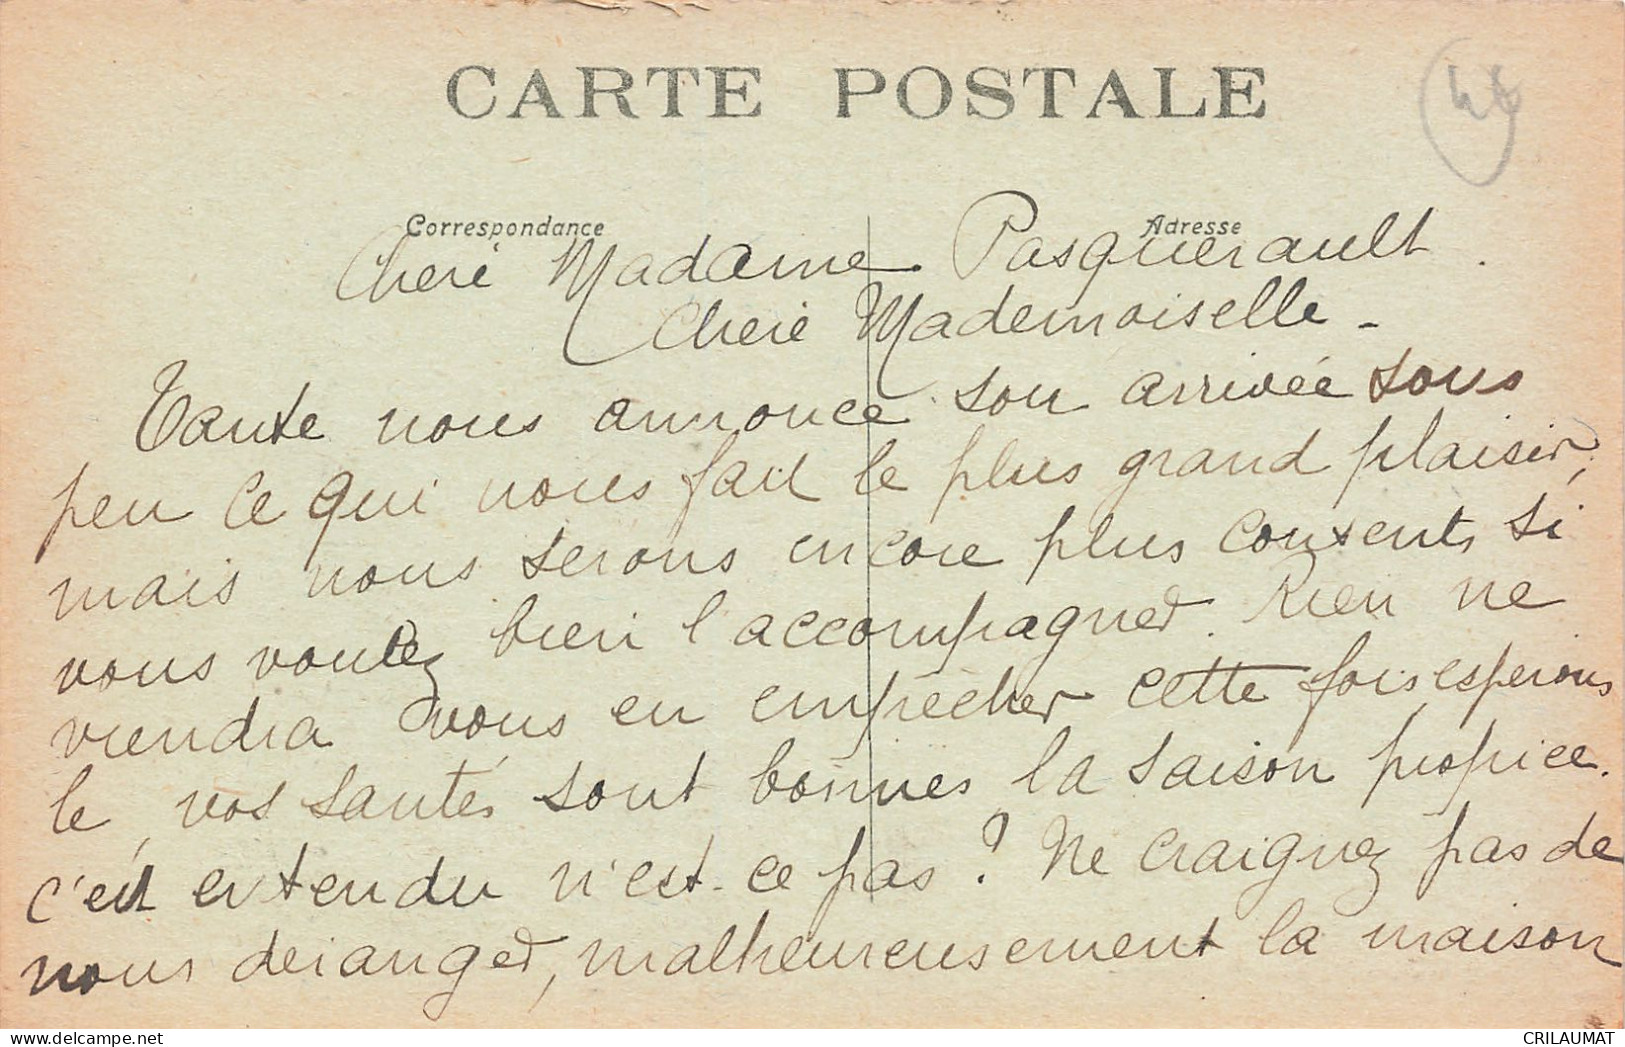 CARTE POSTALE
44
Correspondance
Adresse
Cheré Madame Pasquerault.
Cheré Mademoiselle.
Tante nous annonce son arrivée sous
peu ce qui nous fait le plus grand plaisir,
mais nous serons encore plus contents si
vous voulez bien l'accompagner. Rien ne
viendra vous en empêcher cette fois esperons
le, vos santés sont bonnes, la saison propice.
c'est entendu n'est-ce pas? Ne craignez pas de
nous deranger, malheureusement la maison
CRILAUMAT